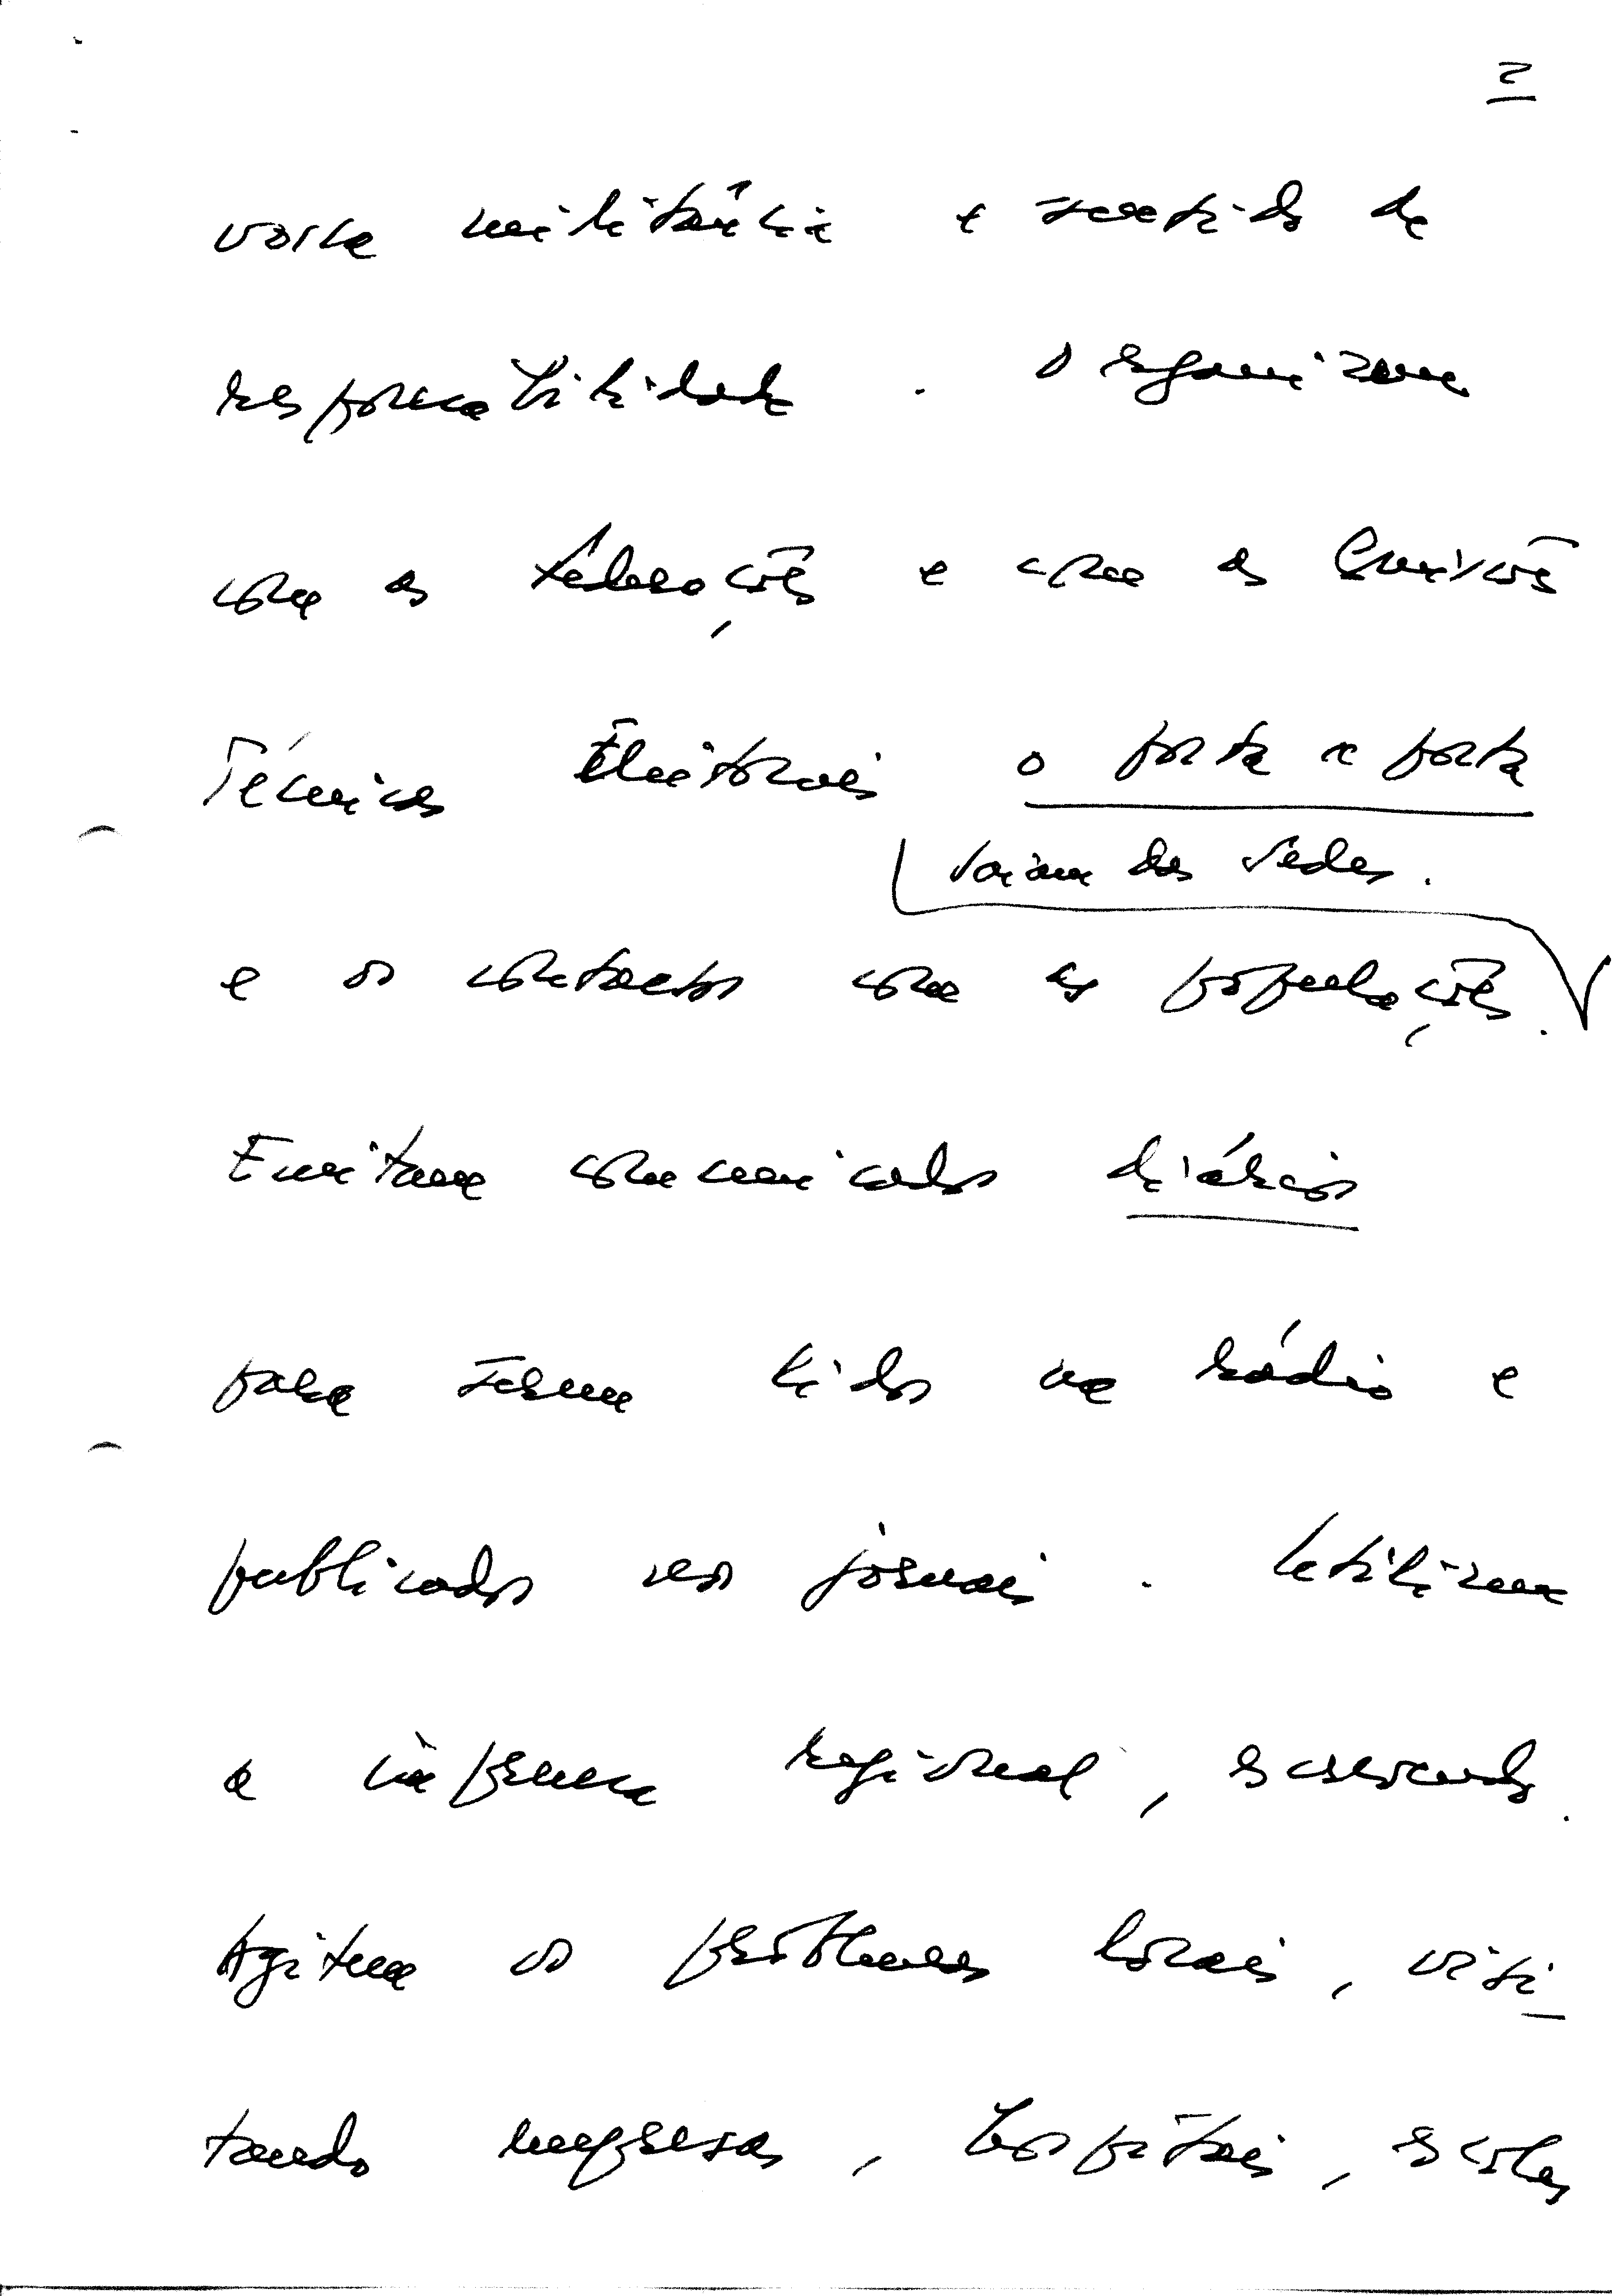 2
vossa militância e sentido de
responsabilidade. Organizem
com as Federações e com as Comissões
Técnicas Eleitorais o porta a porta
Saiam das sedes.
e os contactos com as populações.
Emitam comunicados diários
para serem lidos na rádio e
publicados nos jornais. Utilizem
a imprensa regional, escrevendo.
Agitem os problemas locais, visi_
tando empresas, hospitais, escolas